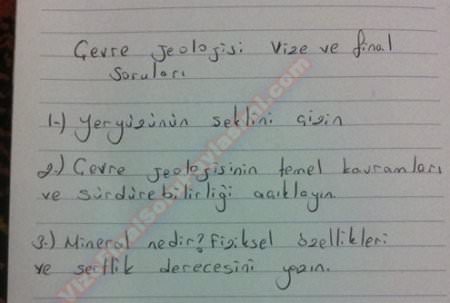 Çevre jeolojisi Vize ve final
Soruları
1-) Yeryüzünün şeklini çizin
2-) Çevre jeolojisinin temel kavramları
ve sürdürebilirliği açıklayın.
3-) Mineral nedir? Fiziksel özellikleri
ve sertlik derecesini yazın.